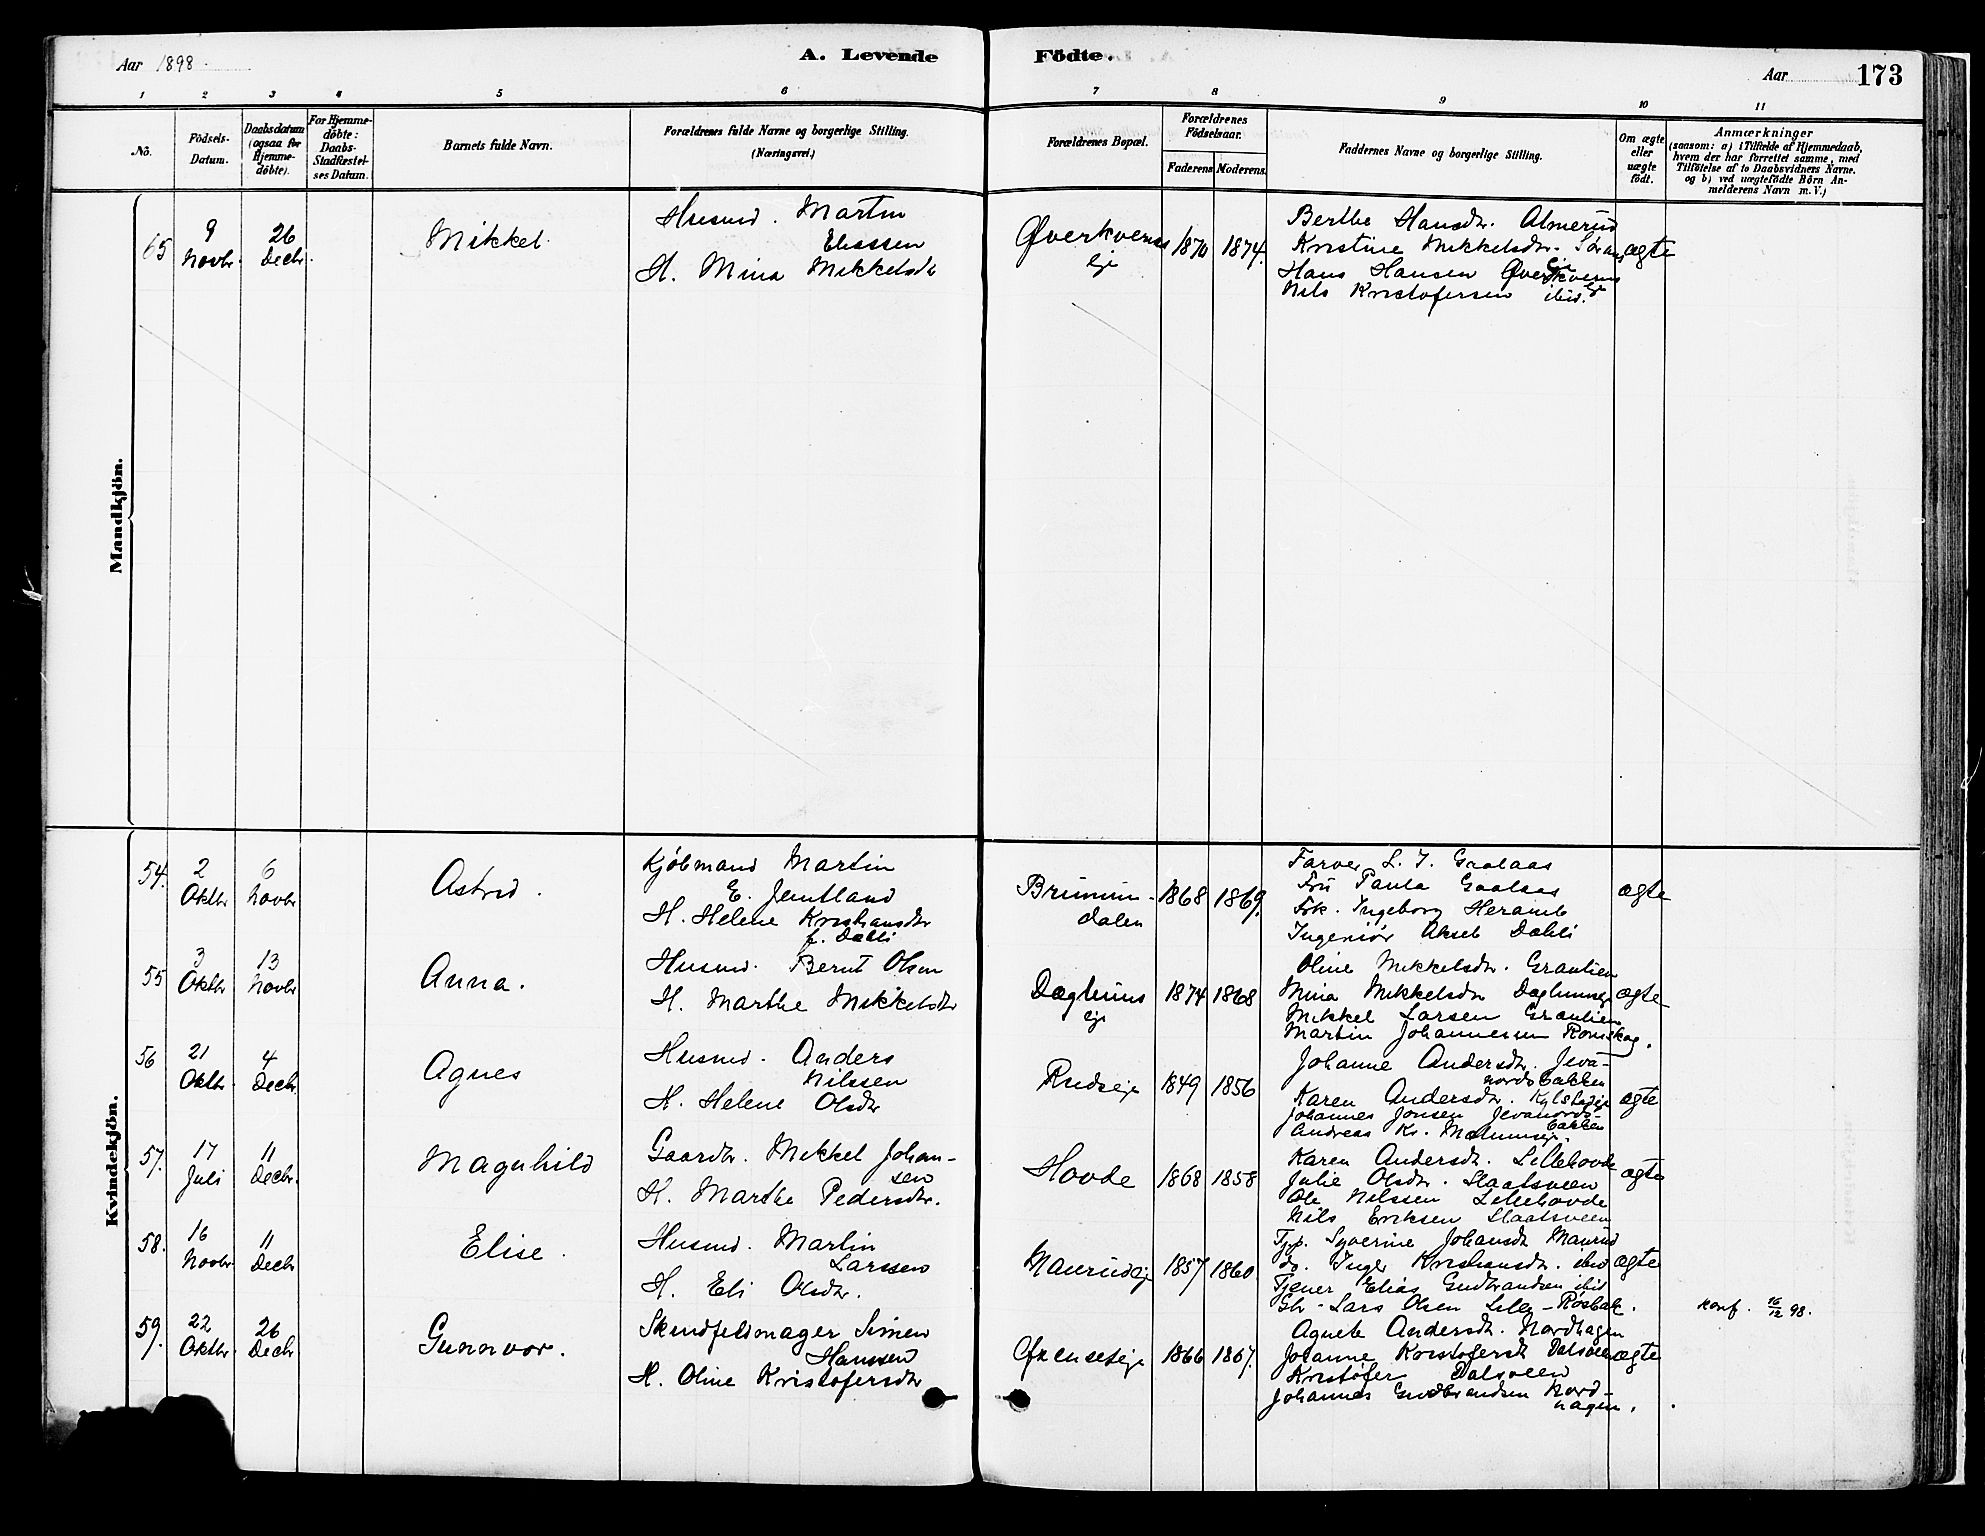 Aar 1898.
A. Levende Födte.
Aar 173
1 2 3 4 5 6 7 8 9 10 11
No.
Födsels-Datum.
Daabsdatum (ogsaa for Hjemme-döbte).
For Hjemme-döbte: Daabs-Stadfæstel-ses Datum.
Barnets fulde Navn.
Forældrenes fulde Navne og borgerlige Stilling.
(Næringsvei.)
Forældrenes Bopæl.
Forældrenes Födselsaar.
Faderens Moderens
Faddernes Navne og borgerlige Stilling.
Om ægte eller uægte födt.
Anmærkninger
(saasom: a) i Tilfælde af Hjemmedaab,
hvem der har forrettet samme, med
Tilföielse af to Daabsvidners Navne.
og b) ved uægtefödte Börn An-
melderens Navn m. V.)
Mandkjön.
65 9 Novbr. 26 Decbr. Mikkel.
Husmd. Martin
Eliassen
H. Mina Mikkelsdtr
Øverkverns
eje
1870 1874.
Berthe Hansdtr. Almerud
Kristine Mikkelsdtr.
Hans Hansen Øverkverns
Nils Kristofersen ibid.
ægte
Kvindekjön.
54. 2 Oktbr 6 Novbr Astrid.
Kjøbmand Martin
E. Jemtland
H. Helene Kristiansdtr
f. Dæhli
Brumun-
dalen
1868 1869.
Farver L. J. Gaalaas
Fru Paula Gaalaas
Frk. Ingeborg Heramb
Ingeniør Aksel Dæhli
ægte
55 3 Oktbr 13 Novbr Anna.
Husmd. Bernt Olsen
H. Marthe Mikkelsdtr
Dæglums
eje
1874 1868
Oline Mikkelsdtr. Grantien
Mina Mikkelsdtr Dæglumseje
Mikkel Larsen Grantien
Martin Johannessen
ægte
56 21 Oktbr. 4 Decbr. Agnes
Husmd. Anders
Nilssen
H. Helene Olsdtr
Rudseje 1849 1856
Johanne Andersdtr. Jeva-
nordsbakken
Karen Andersdtr.
Johannes Jonsen Jevanords-
bakken
Andreas Kr.
ægte
57. 17 Juli 11 Decbr. Magnhild
Gaardbr. Mikkel Johan-
sen
H. Marthe Pedersdtr.
Hovde 1868 1858
Karen Andersdtr. Lillehovde
Julie Olsdtr. Slaatsveen
Ole Nilssen Lillehovde
Nils Eriksen Slaatsveen
ægte
58. 16 Novbr. 11 Decbr Elise.
Husmd. Martin
Larssen
H. Eli Olsdtr.
Maurudeje 1857 1860
Tjp. Syverine Johansdtr Maurud
do. Inger Kristiansdtr. ibid
Tjener Elias Gudbrandsen ibid
Gbr. Lars Olsen
ægte
konf. 16/12 98.
59. 22 Oktbr. 26 Decbr Gunnvor.
Skindfeldmager Simen
Hanssen
H. Oline Kristofersdtr
1866 1867.
Agnete Andersdtr. Nordhagen
Johanne Kristofersdtr Dalsveen
Kristofer Dalsveen
Johannes Gudbrandsen Nord-
hagen.
ægte